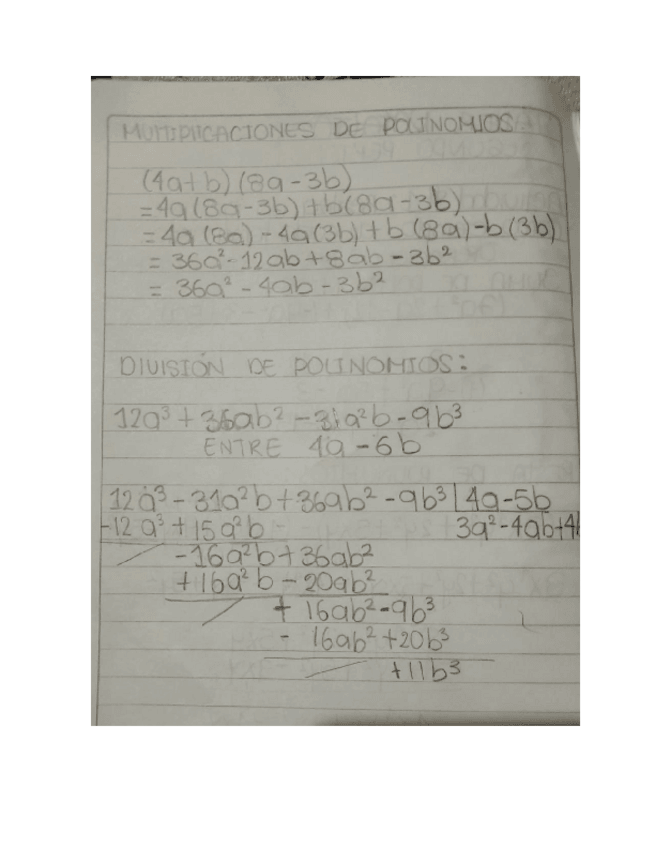 MULTIPLICACIONES DE POLINOMIOS
(4a+b)(8a-3b)
=4a(8a-3b)+b(8a-3b)
=4a(8a)-4a(3b)+b(8a)-b(3b)
= 36a²-12ab+8ab-3b²
= 36a²-4ab-3b²
DIVISIÓN DE POLINOMIOS:
12a³+36ab²-31a²b-9b³
ENTRE 4a-6b
12a³-31a²b+36ab²-9b³ |4a-5b
-12a³+15a²b 3a²-4ab+4
-16a²b+36ab²
+16a²b-20ab²
+16ab²-9b³
- 16ab²+20b³
+11b³